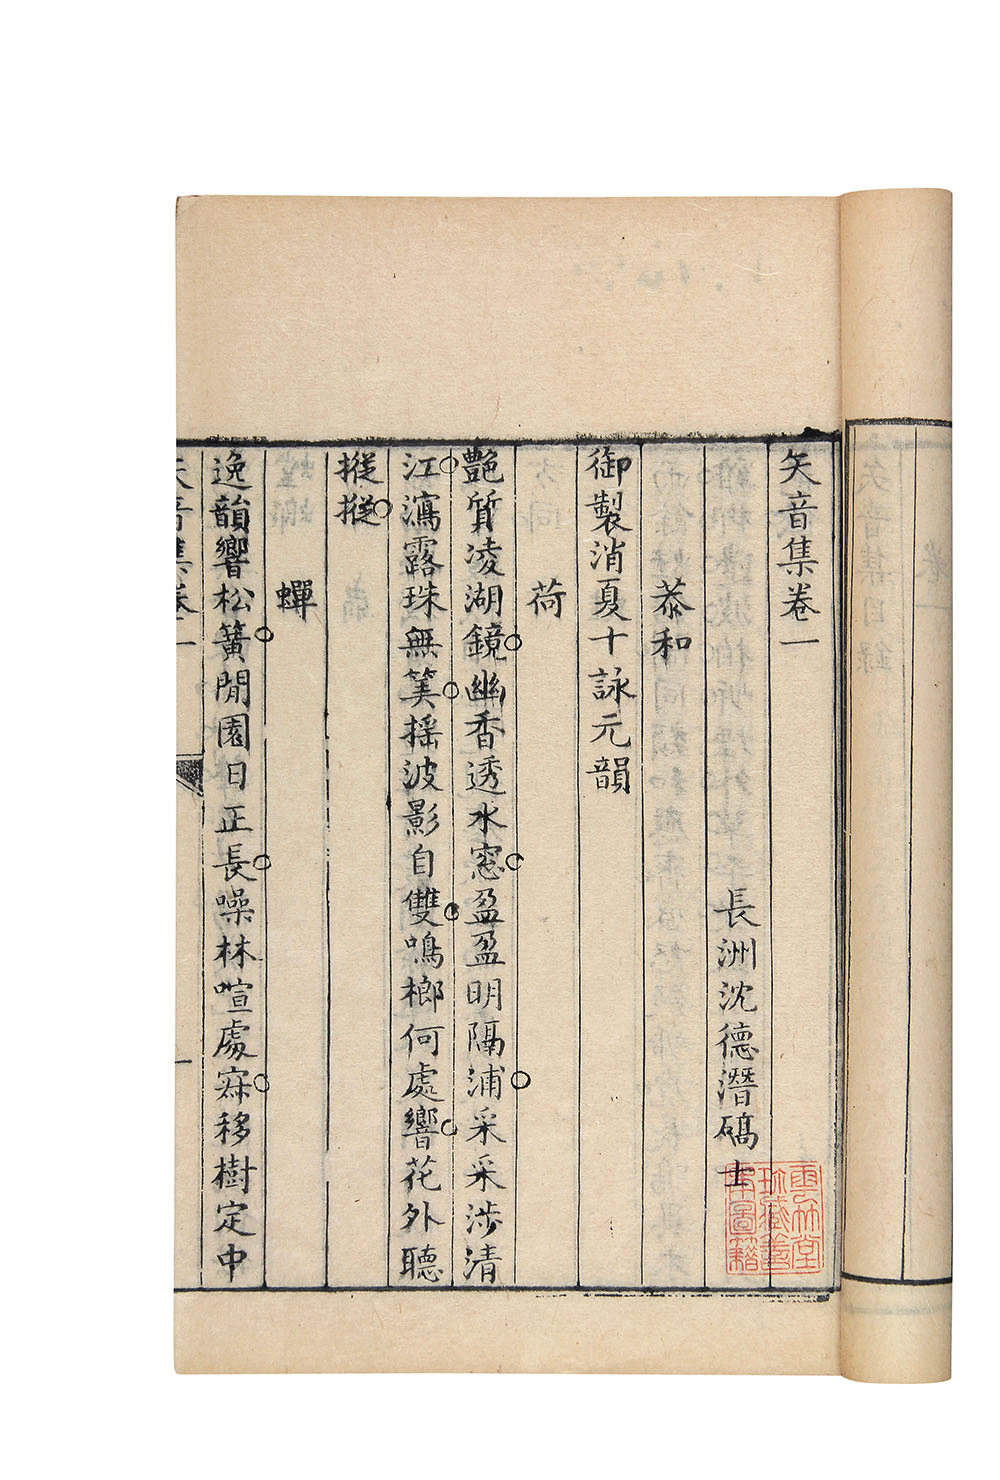 矢音集卷一
長洲沈德潛碻士
恭和
御製消夏十詠元韻
荷
艷質凌湖鏡幽香透水窓盈盈明隔浦采采涉清
江瀉露珠無筭揺波影自雙鳴榔何處響花外聽
摐摐
蟬
逸韻響松簧閒園日正長噪林喧處寂移樹定中
矢音集卷一
一
雲林堂
珍藏善
本圖籍
矢音集目錄
卷一